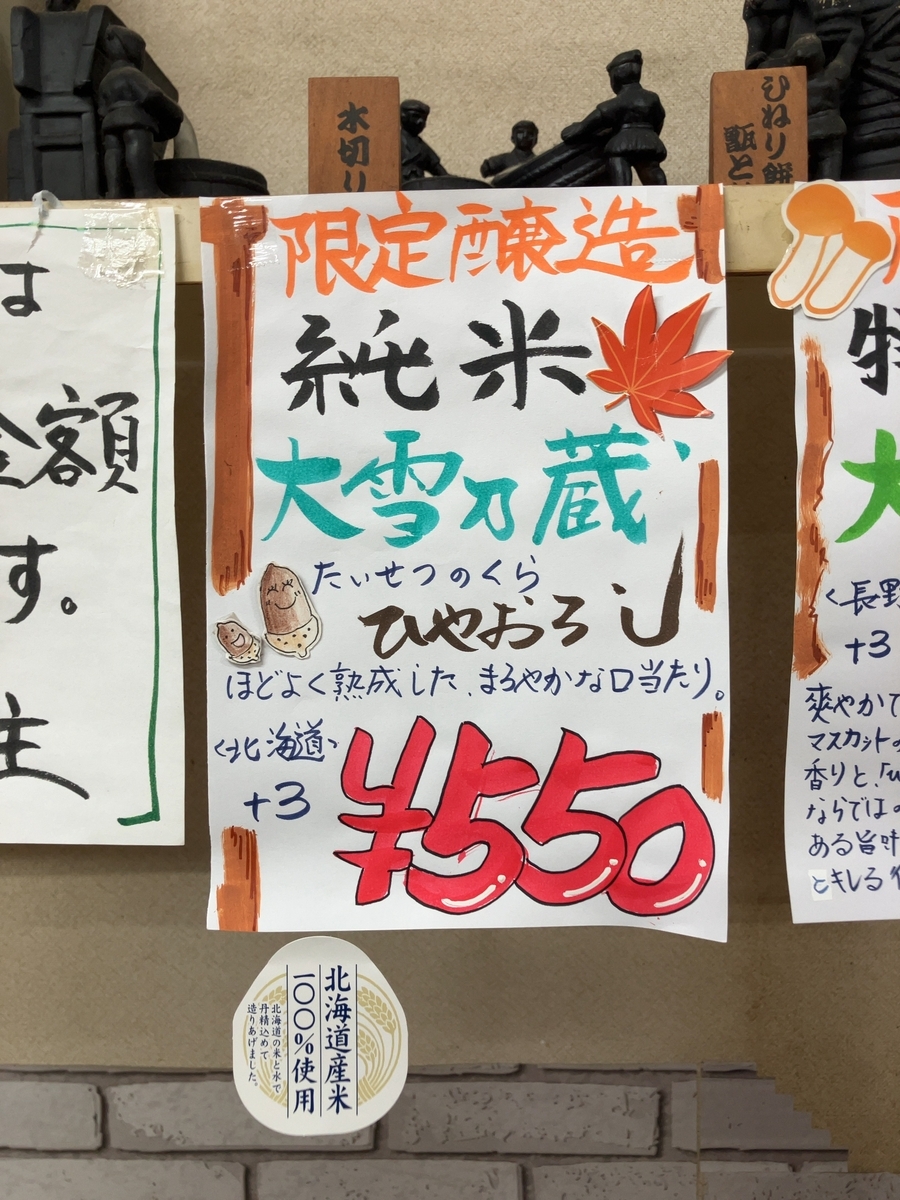 水切り
ひねり餅
甑と
は
金額
す。
主
限定醸造
純米
大雪乃蔵
たいせつのくら
ひやおろし
ほどよく熟成した、まろやかな口当たり。
〈北海道〉
+3
¥550
北海道産米
一〇〇%使用
北海道の米と水で
丹精込めて
造りあげました。
特
大
〈長野
+3
爽やかで
マスカットの
香りと、「
ならではの
ある旨味
とキレる